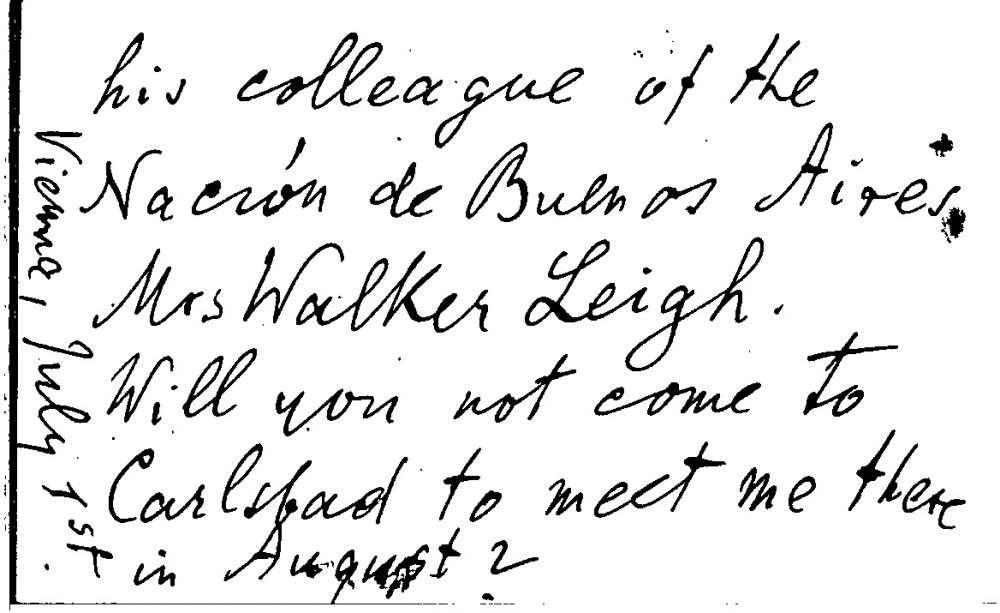 his colleague of the
Nación de Buenos Aires,
Mrs Walker Leigh.
Will you not come to
Carlsbad to meet me there
in August?
Vienna, July 1st.